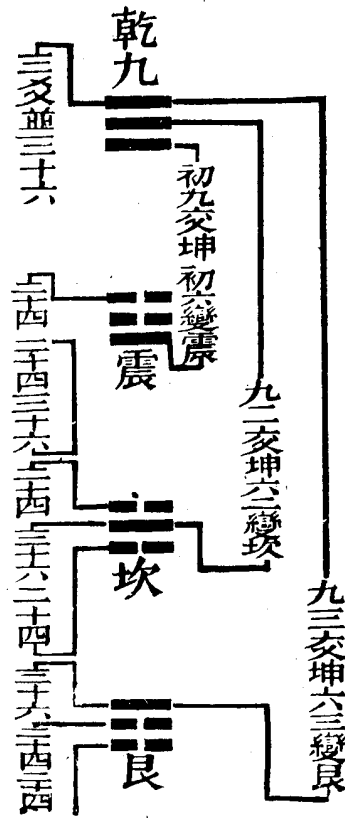 乾九
三爻並三十六
初九交坤初六變震
震
二十四
二十四
三十六
九二交坤六二變坎
坎
二十四
三十六
二十四
九三交坤六三變艮
艮
三十六
二十四
二十四